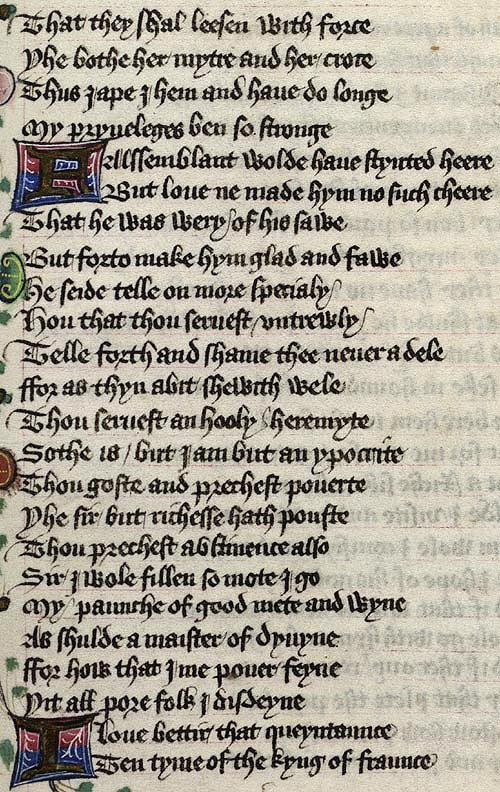 That they shal leesen with force
Yhe bothe her mytre and her croce
Thus jape I hem and haue do longe
My pryueleges ben so stronge
FAlssemblant wolde haue stynted heere
But loue ne made hym no such cheere
That he was wery / of his sawe
But forto make hym glad and fawe
He seide telle on more specialy /
Hou that thou seruest / vntrewly /
Telle forth and shame thee neuer a dele
ffor as thyn abit shewith wele
Thou seruest an hooly / heremyte
Sothe is / but I am but an ypocrite
Thou goste and prechest pouerte
Yhe sir but richesse hath pouste
Thou prechest abstinence also
Sir I wole fillen so mote I go
My / paunche of good mete and wyne
As shulde a maister of dyuyne
ffor how that I me pouer feyne
Yit all pore folk I disdeyne
I loue bettir that queyntaunce
Ten tyme of the kyng of fraunce